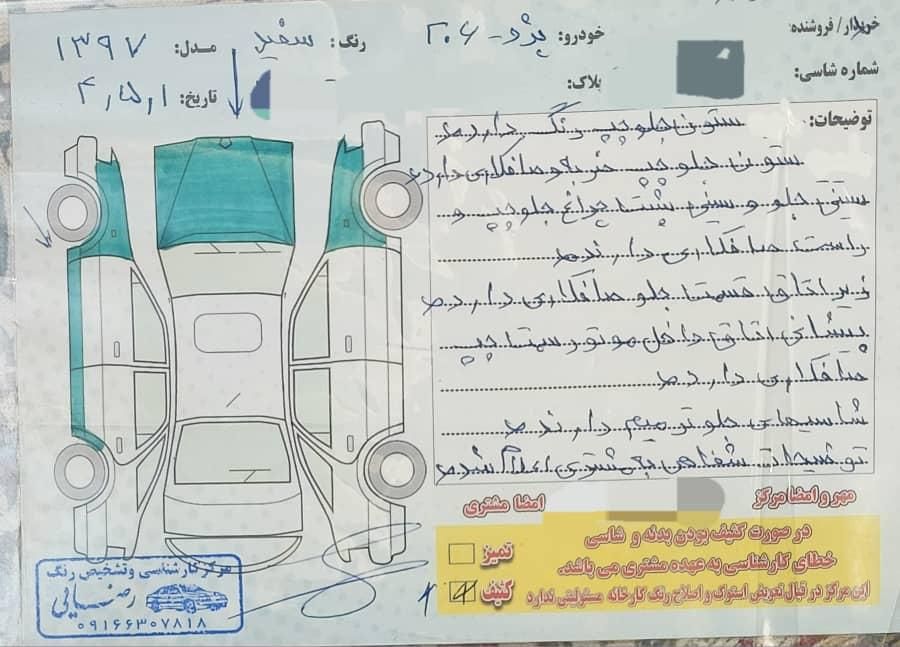 خریدار/ فروشنده
خودرو: پژو - ۲۰۶
رنگ: سفید
مدل: ۱۳۹۷
شماره شاسی:
پلاک:
تاریخ:
توضیحات:
ستون جلو چپ رنگ دارد
ستون جلو چپ ضربه و صافکاری دارد
سینی جلو و سینی پشت چراغ جلو چپ و
راست صافکاری دارند
زیر اتاق قسمت جلو صافکاری دارد
پیشانی اتاق داخل موتور سمت چپ
صافکاری دارد
شاسیهای جلو ترمیم دارند
توضیحات شفاهی به مشتری اعلام شد
مهر و امضا مرکز
امضا مشتری
در صورت کثیف بودن بدنه و شاسی
خطای کارشناسی به عهده مشتری می باشد.
این مرکز در قبال تعویض استوک و اصلاح رنگ کارخانه مسئولیتی ندارد
تمیز
کثیف
مرکز کارشناسی و تشخیص رنگ
رضایی
۰۹۱۶۶۳۰۷۸۱۸